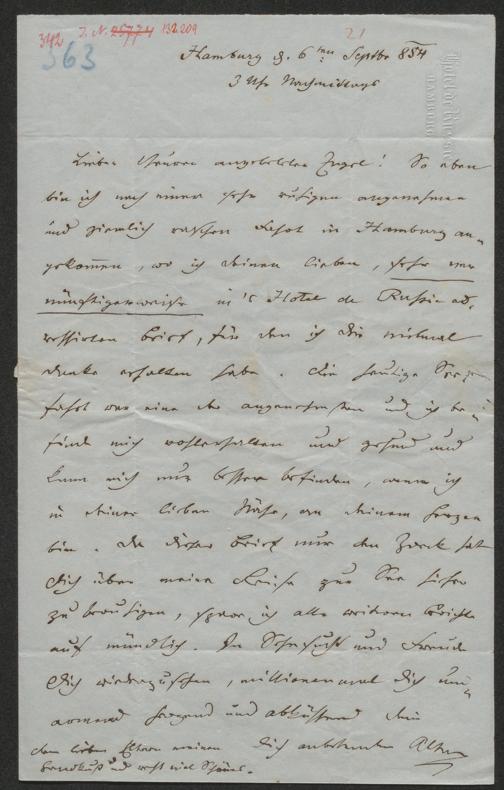 342 I. N. 25774 132.209
363
21
Hamburg d. 6ten Septbr 854
3 Uhr Nachmittags
Hotel de Russie
HAMBURG
Lieber theurer angebeteter Engel! So eben
bin ich nach einer sehr ruhigen angenehmen
und ziemlich raschen Fahrt in Hamburg an-
gekommen, wo ich deinen lieben, sehr ver
nünftigerweise in's Hotel de Russie ad-
ressirten Brief, für den ich dir
danke erhalten habe. Die heutige See-
fahrt war eine der angenehmsten und ich be-
finde mich wohlerhalten und gesund und
kann mich nur besser befinden, wenn ich
in deiner lieben Nähe, an deinem Herzen
bin. Da dieser Brief nur den Zweck hat
dich über meine Reise zur See sicher
zu beruhigen, spare ich alle weiteren Berichte
auf mündlich. In Sehnsucht und Freude
dich wiederzusehen, millionenmal dich um-
armend herzend und abküssend dein
dich anbetender Alter
den lieben Eltern meinen
Handkuß und recht viel Schönes.